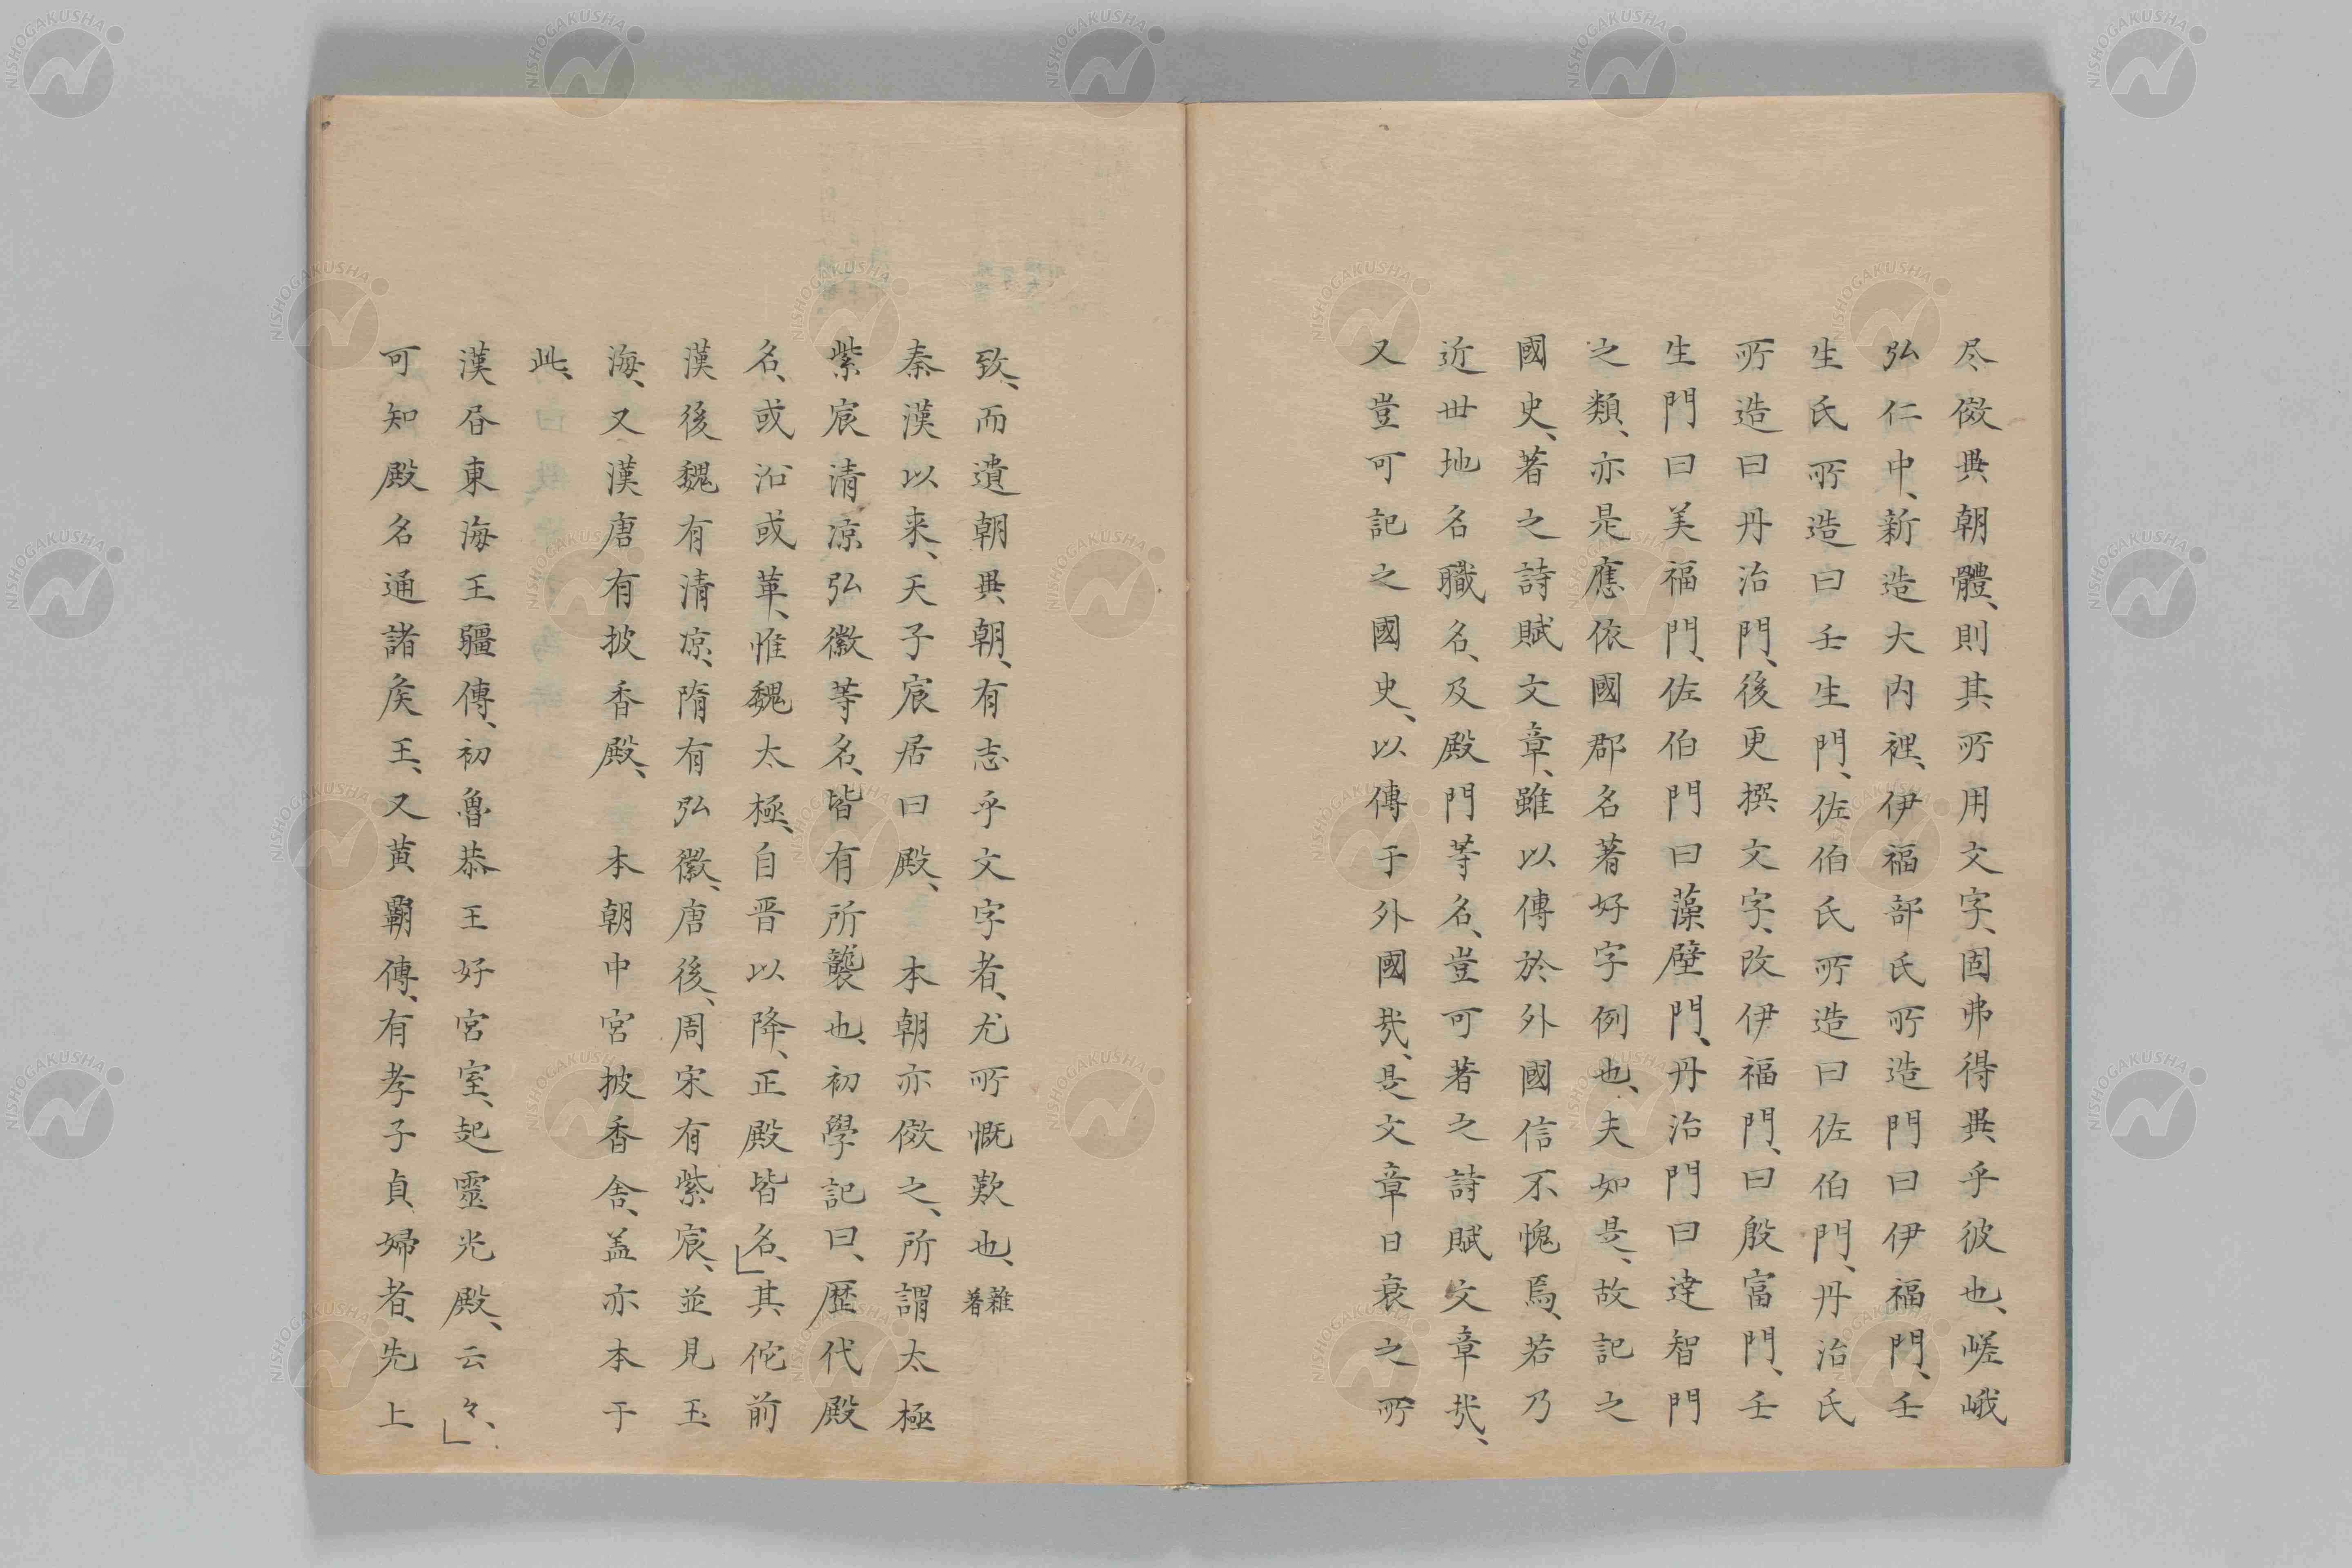 尽倣異朝體、則其所用文字、固弗得異乎彼也、嵯峨
弘仁中、新造大内裡、伊福部氏所造門曰伊福門、壬
生氏所造曰壬生門、佐伯氏所造曰佐伯門、丹治氏
所造曰丹治門、後更撰文字、改伊福門、曰殷富門、壬
生門曰美福門、佐伯門曰藻壁門、丹治門曰達智門
之類、亦是應依國郡名著好字例也、夫如是、故記之
國史、著之詩賦文章、雖以傳於外國信不愧焉、若乃
近世地名職名、及殿門等名、豈可著之詩賦文章哉、
又豈可記之國史、以傳于外國哉、是文章日衰之所
致、而遺朝異朝、有志乎文字者、尤所慨歎也、雜著
秦漢以来、天子宸居曰殿、本朝亦倣之、所謂太極
紫宸清凉弘徽等名、皆有所襲也、初學記曰、歴代殿
名、或沿或革、惟魏太極、自晋以降、正殿皆名、」其佗前
漢後魏有清凉、隋有弘徽、唐後、周宋有紫宸、並見玉
海、又漢唐有披香殿、本朝中宮披香舎、盖亦本于
此、
漢昏東海王疆傳、初魯恭王好宮室、起靈光殿、云々、」
可知殿名通諸侯王、又黄霸傳、有孝子貞婦者、先上
NISHOGAKUSHA